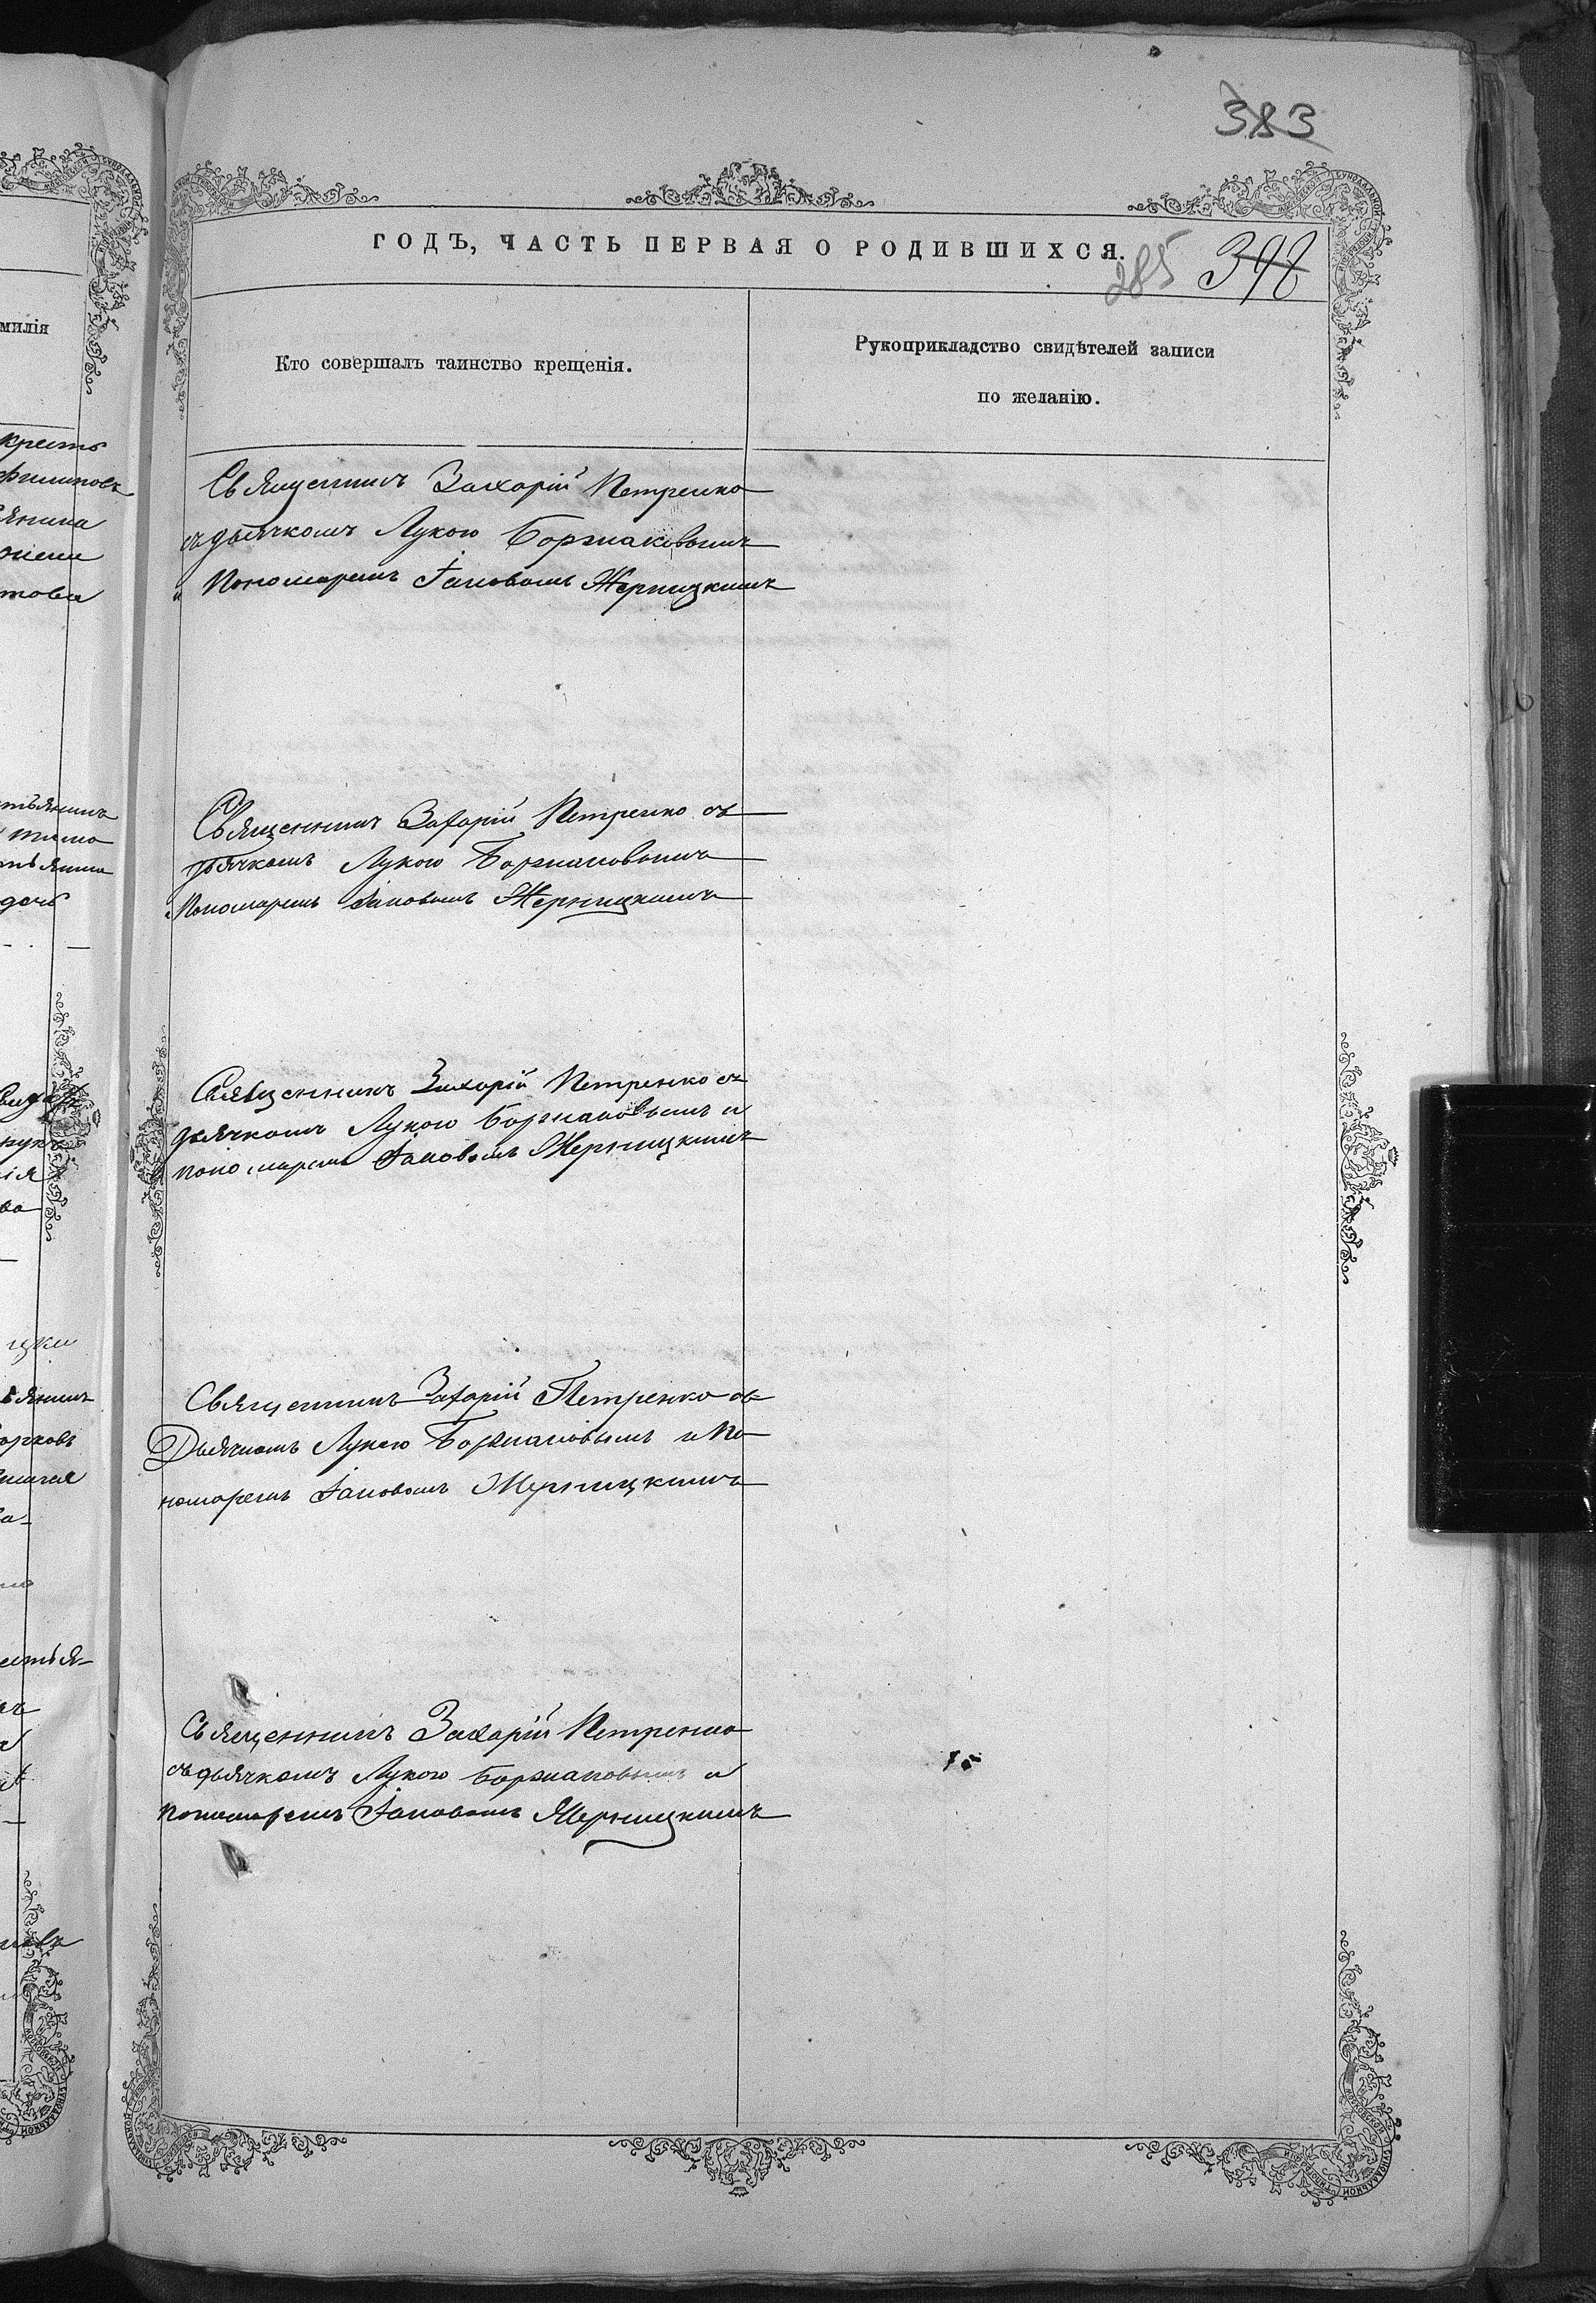 383
ГОДЪ, ЧАСТЬ ПЕРВАЯ О РОДИВШИХСЯ.
285 398
Кто совершалъ таинство крещенія.
Рукоприкладство свидѣтелей записи
по желанію.
Священникъ Захарій Петренко
съ дьячкомъ Лукою Боржаковымъ
и Пономаремъ Іаковомъ Жерницкимъ
Священникъ Захарій Петренко съ
дьячкомъ Лукою Боржаковымъ
Пономаремъ Іаковомъ Жерницкимъ
Священникъ Захарій Петренко съ
дьячкомъ Лукою Боржаковымъ и
пономаремъ Іаковомъ Жерницкимъ
Священникъ Захарій Петренко съ
Дьячкомъ Лукою Боржаковымъ и По-
номаремъ Іаковомъ Жерницкимъ
Священникъ Захарій Петренко
съ дьячкомъ Лукою Боржаковымъ и
пономаремъ Іаковомъ Жерницкимъ